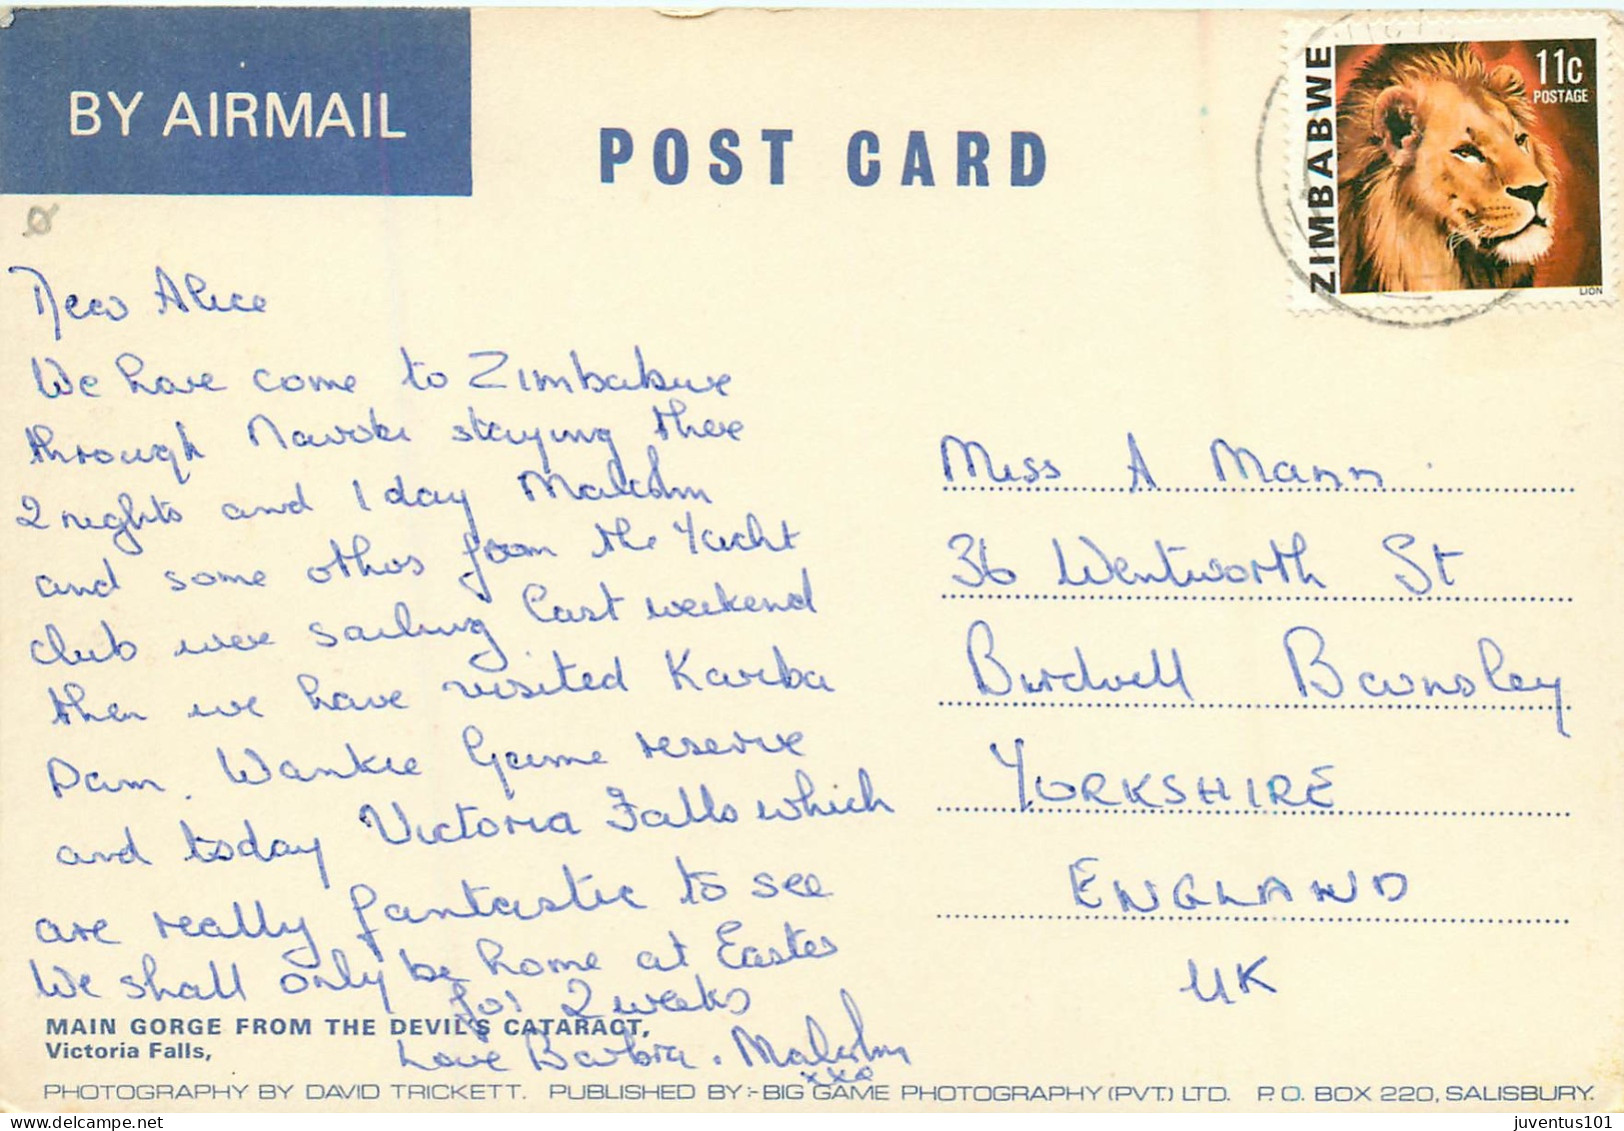 BY AIRMAIL
POST CARD
ZIMBABWE
11c
POSTAGE
LION
Dear Alice
We have come to Zimbabwe
through Nairobi staying there
2 nights and 1 day Malcolm
and some others from the Yacht
club were sailing last weekend
then we have visited Kariba
Dam. Wankie Game reserve
and today Victoria Falls which
are really fantastic to see
We shall only be home at Easter
for 2 weeks
Love Barbra. Malcolm
xxx
Miss A Mann
36 Wentworth St
Birdwell Barnsley
YORKSHIRE
ENGLAND
UK
MAIN GORGE FROM THE DEVIL'S CATARACT,
Victoria Falls,
PHOTOGRAPHY BY DAVID TRICKETT. PUBLISHED BY:-BIG GAME PHOTOGRAPHY (PVT.) LTD. P.O. BOX 220, SALISBURY.
juventus101